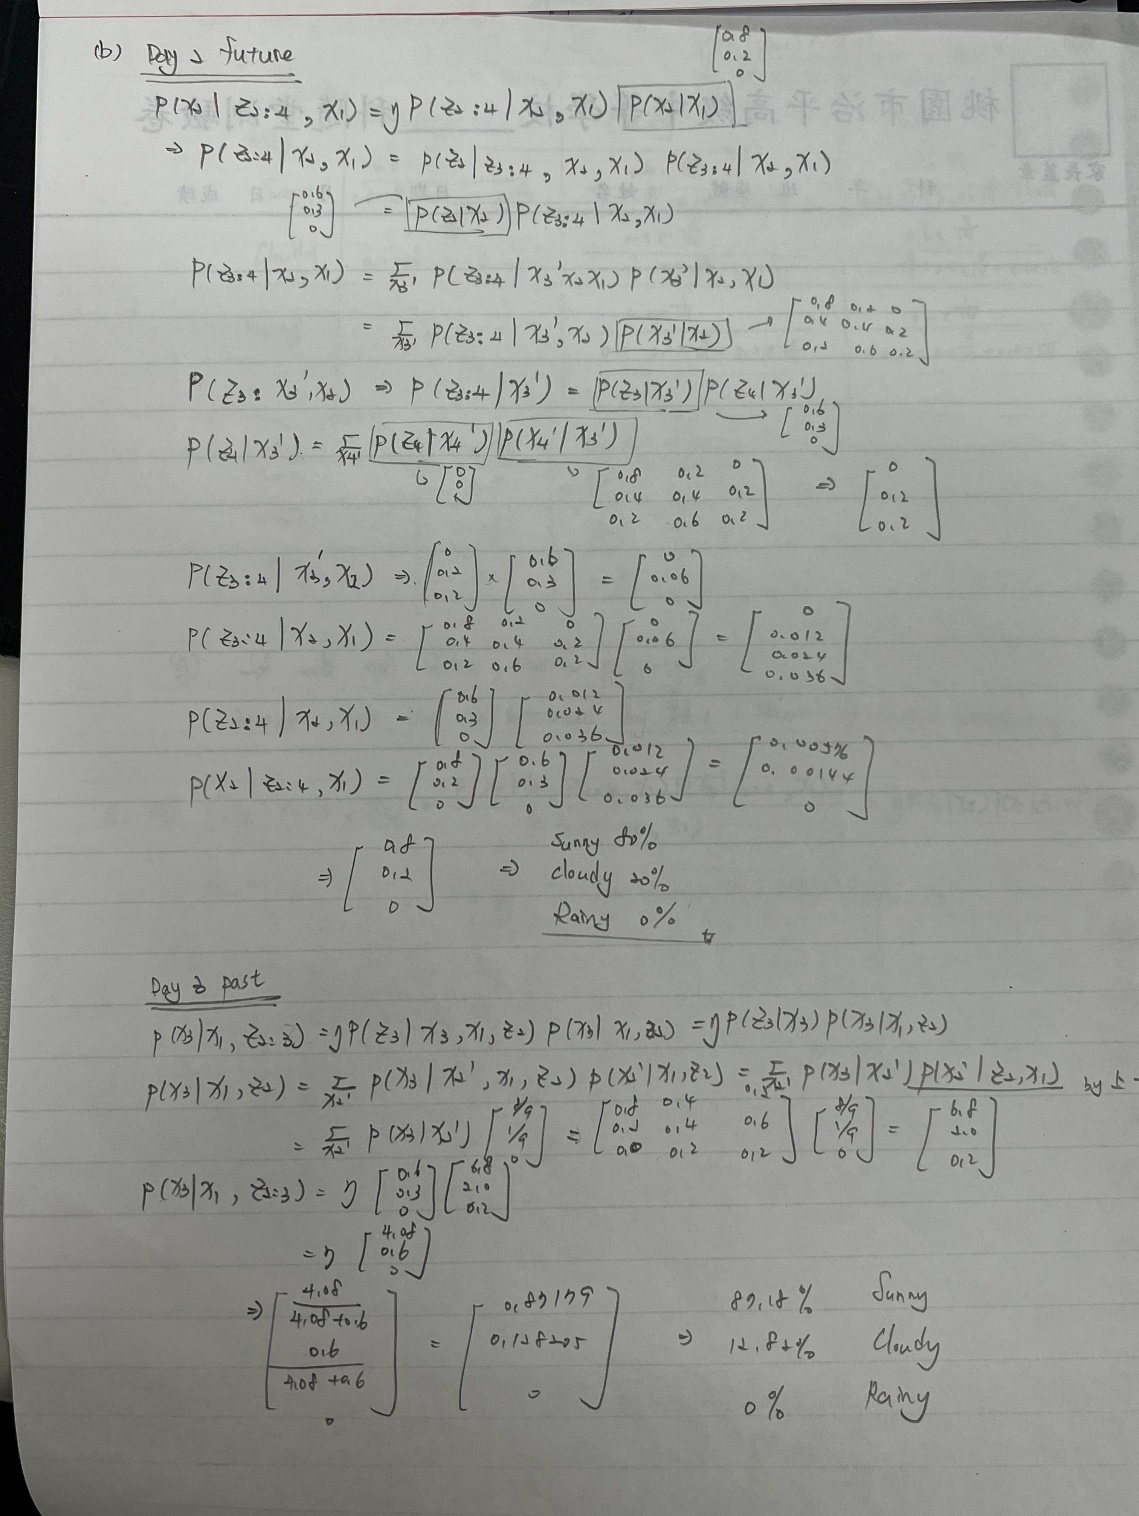 (b) Day 2 future
[0.8 0.2 0]
P(x2 | z2:4, x1) = η P(z2:4 | x2, x1) P(x2|x1)
⇒ P(z2:4 | x2, x1) = P(z2 | z3:4, x2, x1) P(z3:4 | x2, x1)
[0.6 0.3 0] = P(z2|x2) P(z3:4 | x2, x1)
P(z3:4 | x2, x1) = Σx3' P(z3:4 | x3' x2 x1) P(x3' | x2, x1)
= Σx3' P(z3:4 | x3', x2) P(x3' | x2) → [0.8 0.2 0 / 0.4 0.4 0.2 / 0.2 0.6 0.2]
P(z3: x3', x2) ⇒ P(z3:4 | x3') = P(z3|x3') P(z4|x3')
→ [0.6 0.3 0]
P(z4|x3') = Σx4' P(z4|x4') P(x4'|x3')
[0 0 1] [0.8 0.2 0 / 0.4 0.4 0.2 / 0.2 0.6 0.2] ⇒ [0 0.2 0.2]
P(z3:4 | x3', x2) ⇒ [0 0.2 0.2] × [0.6 0.3 0] = [0 0.06 0]
P(z3:4 | x2, x1) = [0.8 0.2 0 / 0.4 0.4 0.2 / 0.2 0.6 0.2] [0 0.06 0] = [0 0.012 0.024 0.036]
P(z2:4 | x2, x1) = [0.6 0.3 0] [0.012 0.024 0.036]
P(x2 | z2:4, x1) = [0.8 0.2 0] [0.6 0.3 0] [0.012 0.024 0.036] = [0.00576 0.00144 0]
⇒ [0.8 0.2 0] ⇒ Sunny 80%
cloudy 20%
Rainy 0%
Day 3 past
P(x3|x1, z2:3) = η P(z3 | x3, x1, z2) P(x3 | x1, z2) = η P(z3|x3) P(x3|x1, z2)
P(x3|x1, z2) = Σx2' P(x3 | x2', x1, z2) P(x2'|x1, z2) = Σx2' P(x3|x2') P(x2' | z2, x1)
= Σx2' P(x3|x2') [8/9 1/9 0] = [0.8 0.4 0.2 / 0.2 0.4 0.6 / 0.0 0.2 0.2] [8/9 1/9 0] = [6.8 2.0 0.2]
P(x3|x1, z2:3) = η [0.6 0.3 0] [6.8 2.0 0.2]
= η [4.08 0.6 0]
⇒ [4.08/4.08+0.6 0.6/4.08+0.6 0] = [0.87179 0.128205 0] ⇒ 87.18% Sunny
12.82% Cloudy
0% Rainy